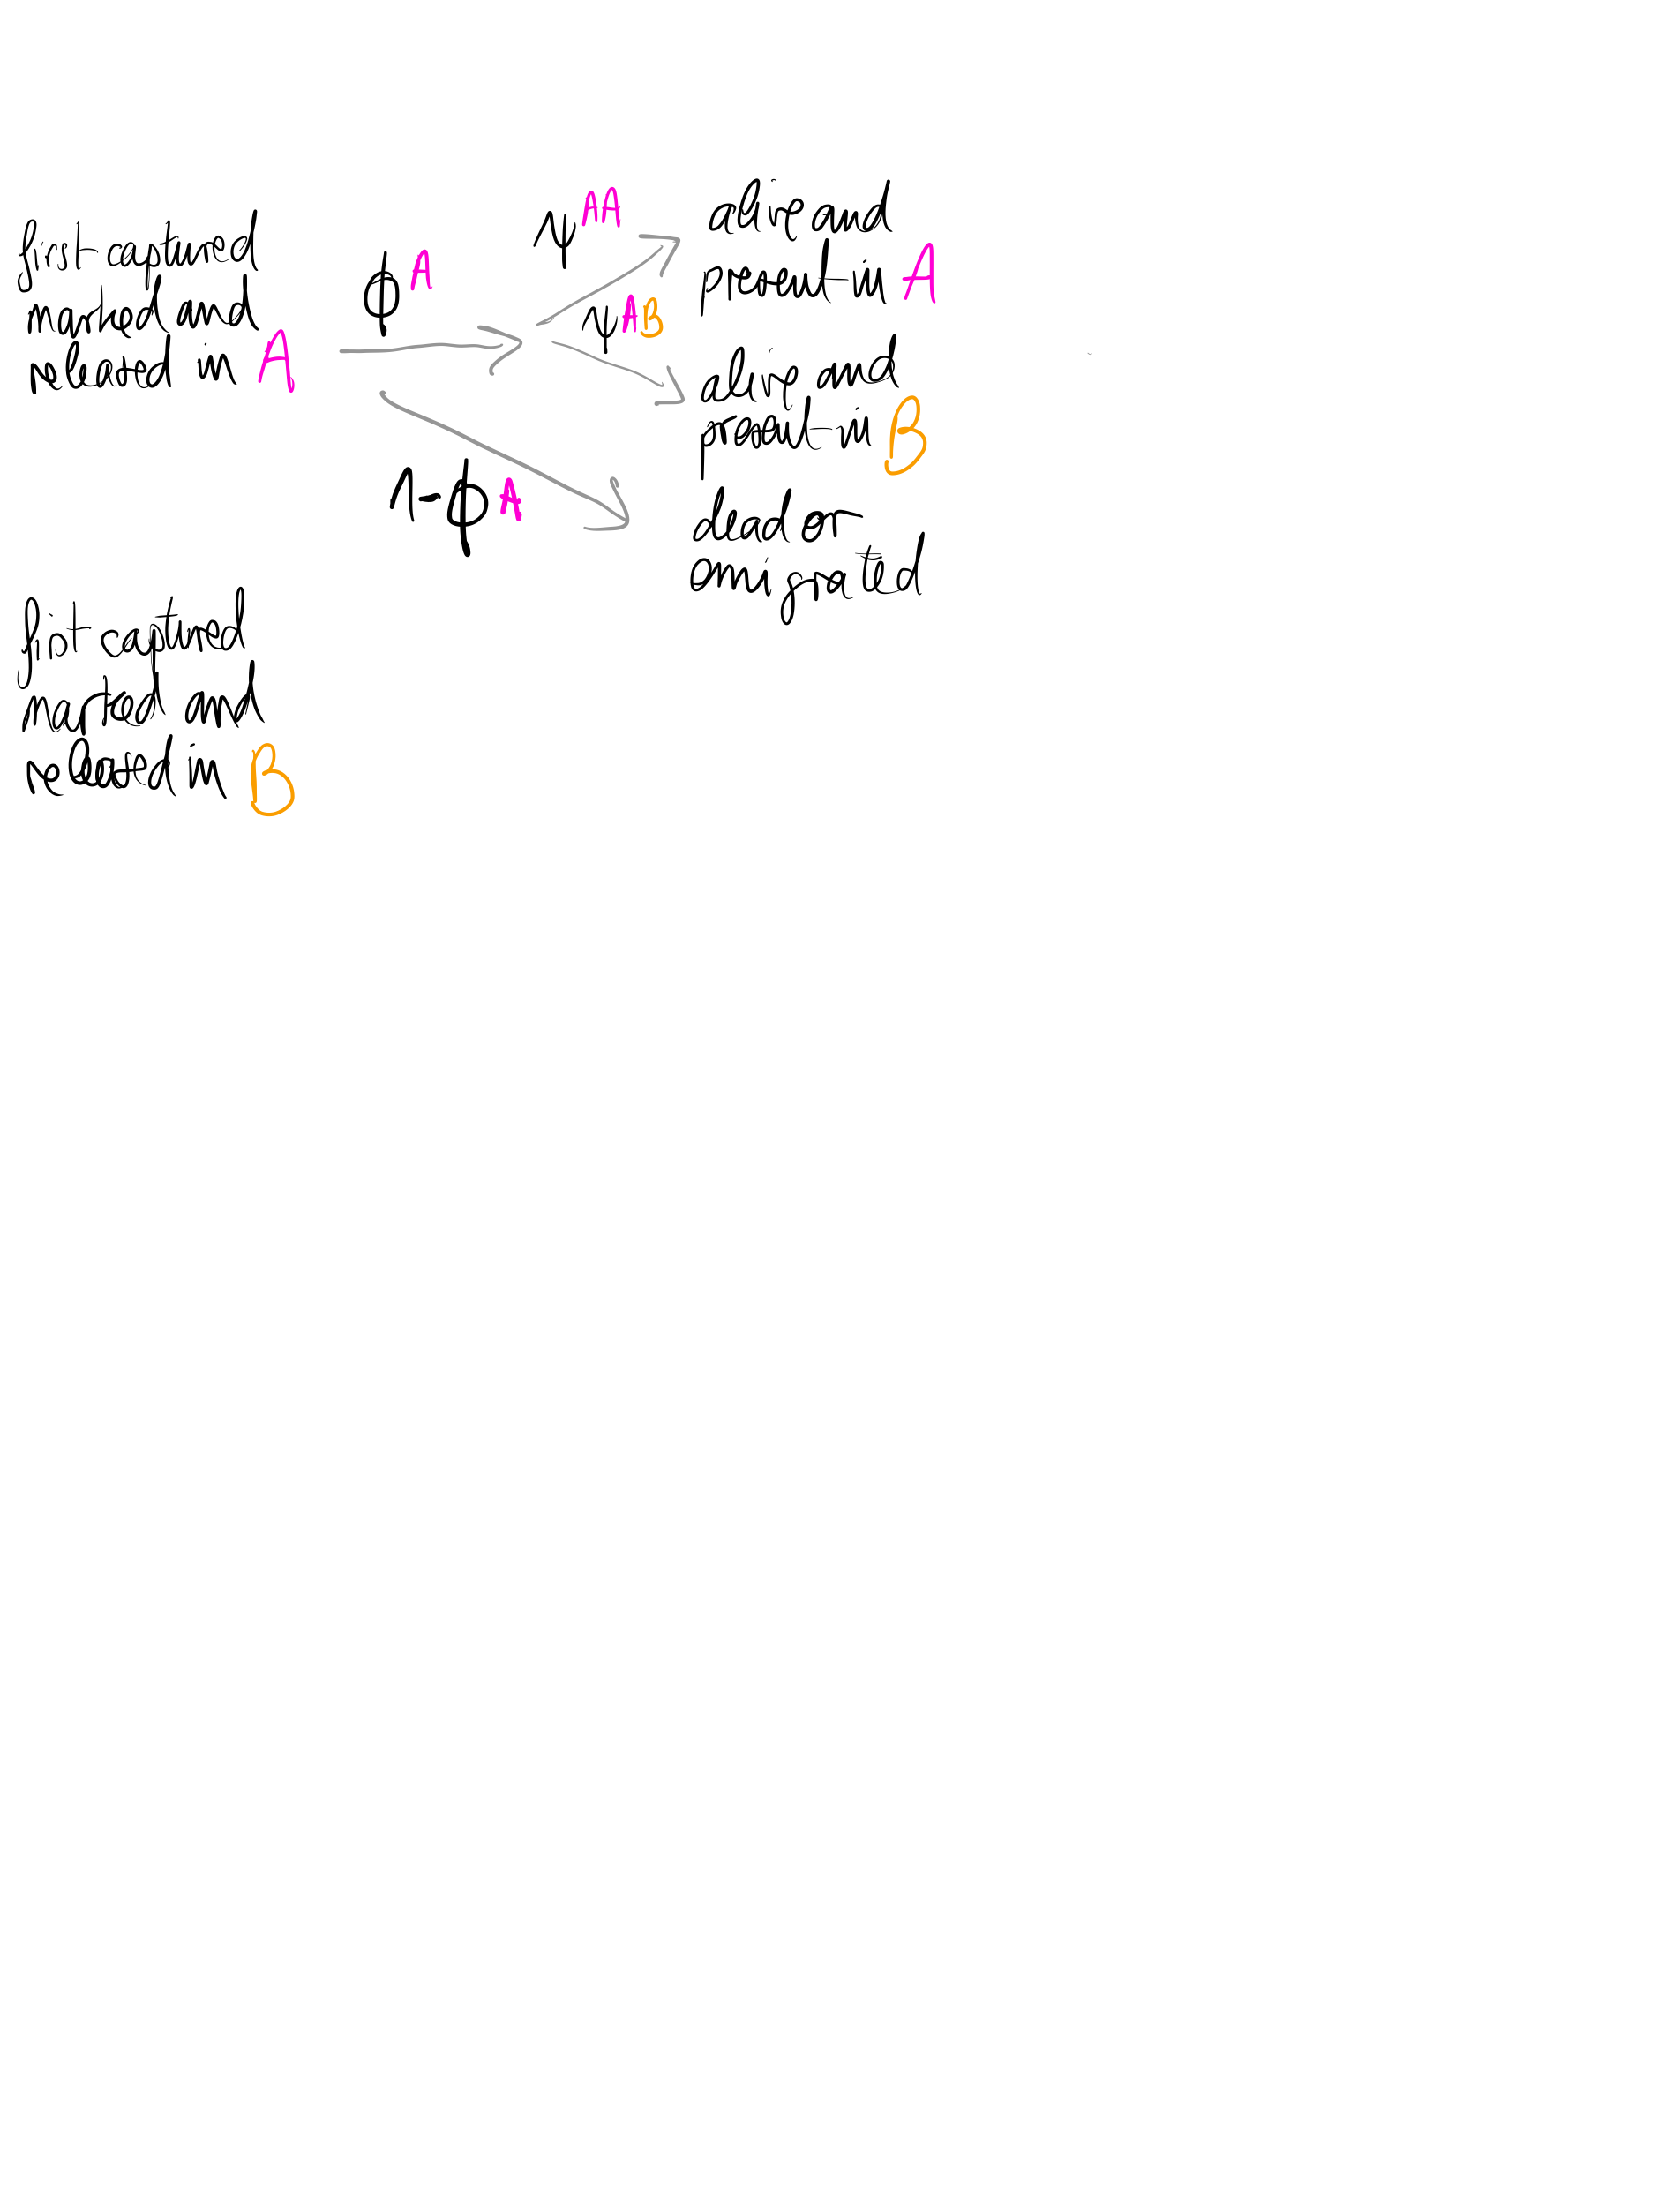 first captured
marked and
released in A
ϕᴬ
1-ϕᴬ
ψᴬᴬ
ψᴬᴮ
alive and
present in A
alive and
present in B
dead or
emigrated
first captured
marked and
released in B